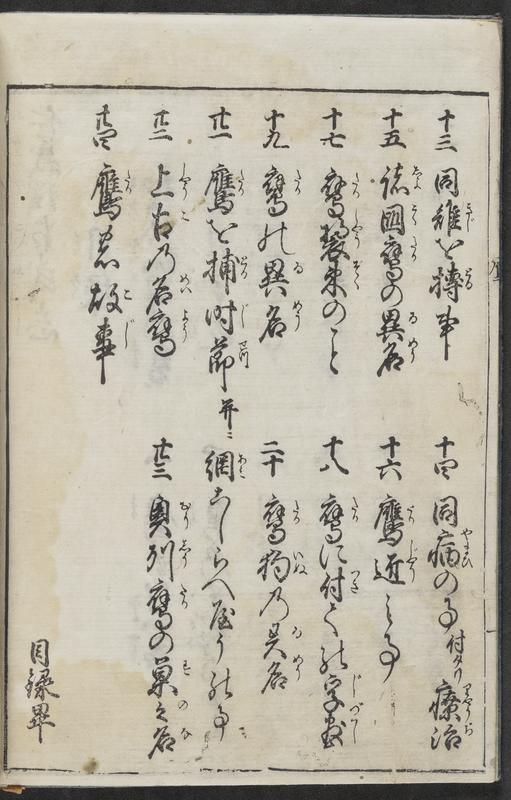 十三 同雉を摶事
十四 同病の事 付タリ 療治
十五 諸國鷹の異名
十六 鷹近之事
十七 鷹装束のこと
十八 鷹に付く 字
十九 鷹の異名
二十 鷹狗乃異名
廿一 鷹を捕時節 并ニ 網こしらへ 事
廿二 上古乃名鷹
廿三 奥列鷹の巣之名
廿四 鷹 故事
目録畢